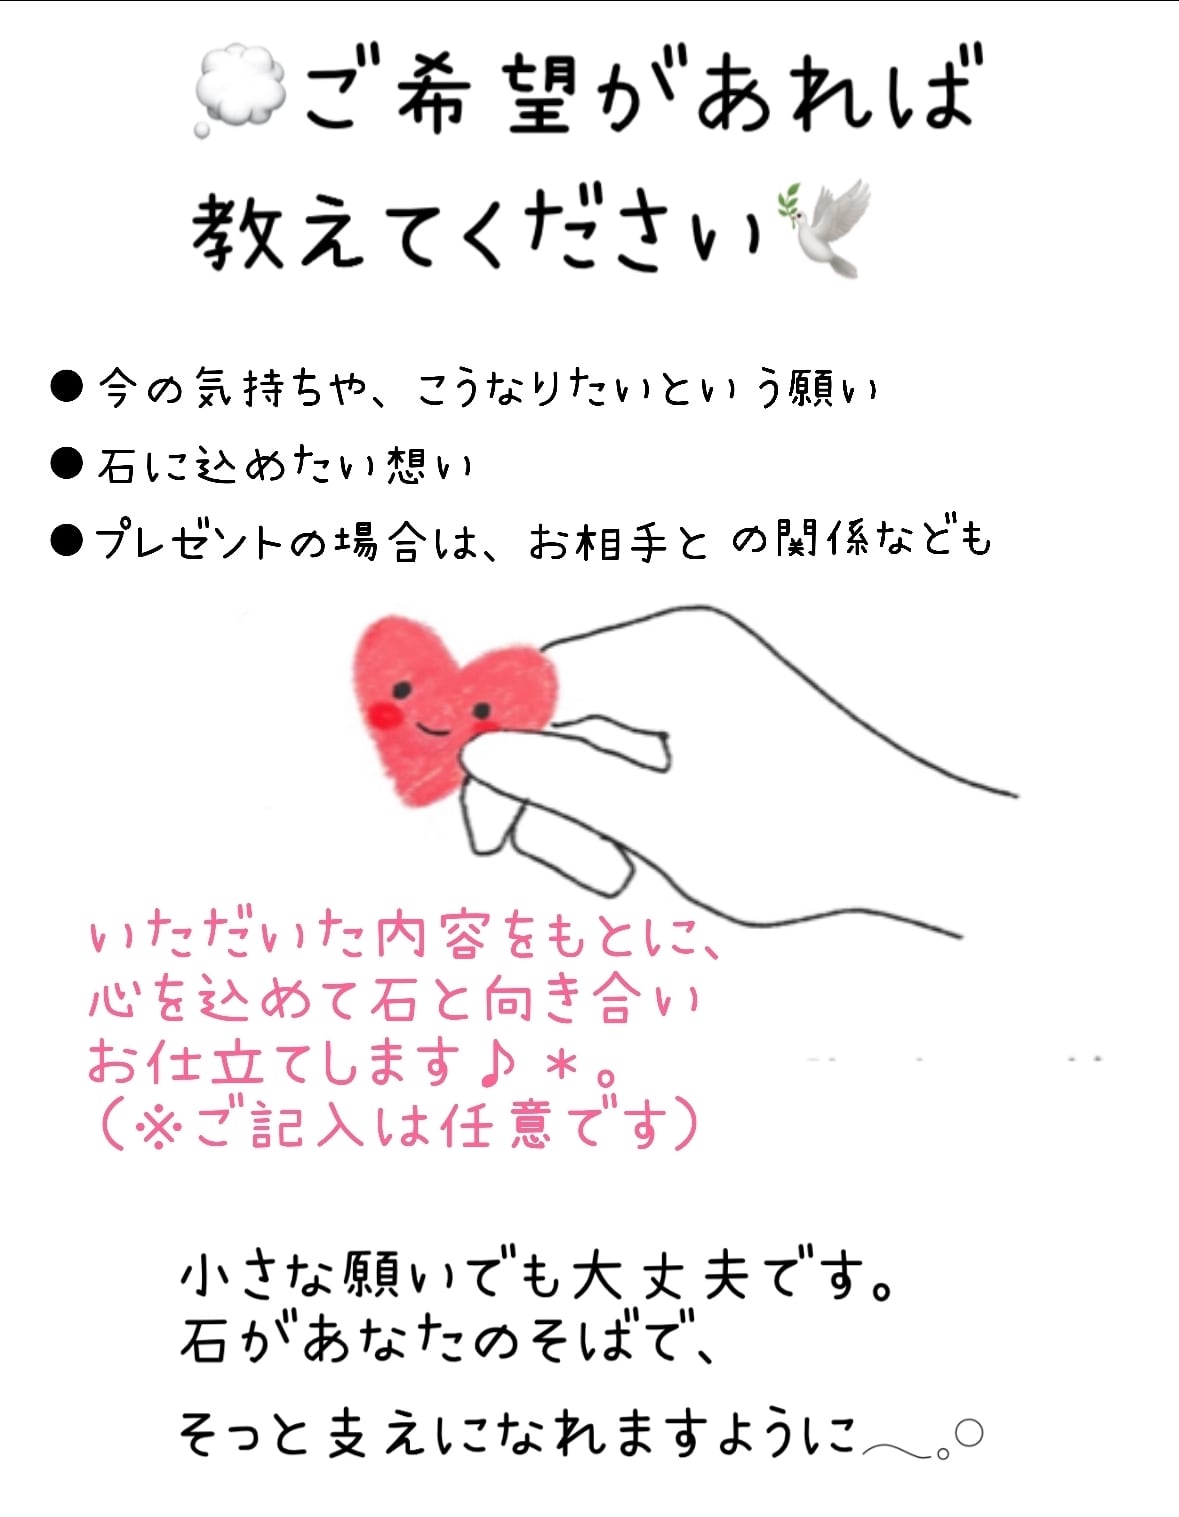 💭ご希望があれば
教えてください🕊️
●今の気持ちや、こうなりたいという願い
●石に込めたい想い
●プレゼントの場合は、お相手との関係なども
いただいた内容をもとに、
心を込めて石と向き合い
お仕立てします♪＊。
（※ご記入は任意です）
小さな願いでも大丈夫です。
石があなたのそばで、
そっと支えになれますように